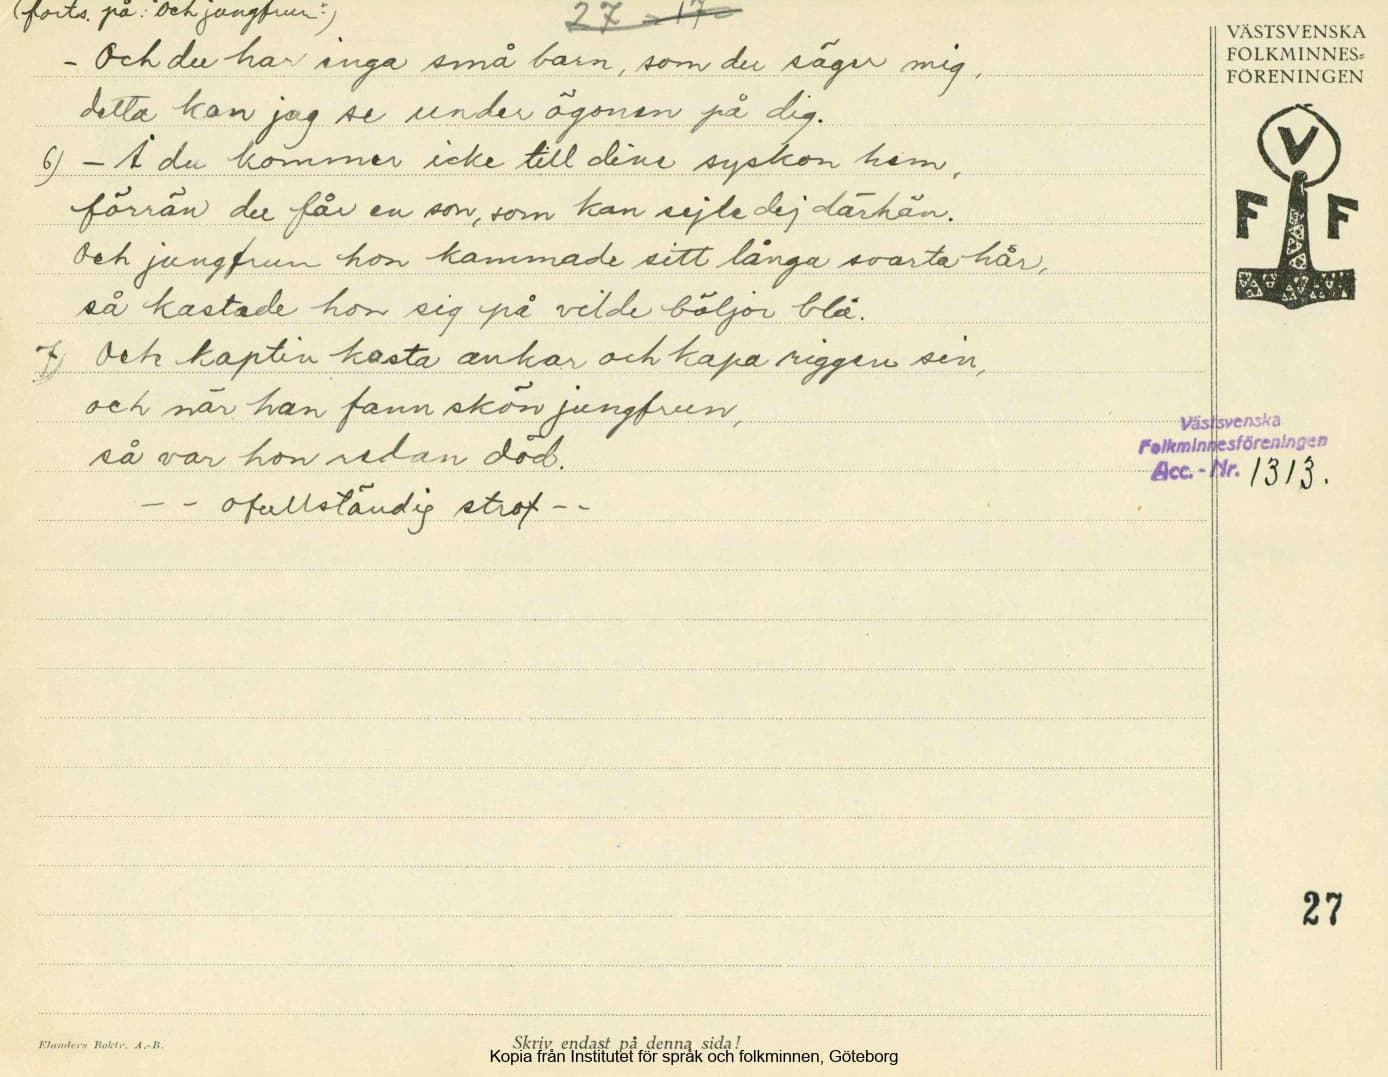 (forts. på: "Och jungfrun":)
27 - 17 -
- Och du har inga små barn, som du säger mig,
detta kan jag se under ögonen på dig.
6) - Å du kommer icke till dine syskon hem,
förrän du får en son, som kan sejle dej därhän.
Och jungfrun hon kammade sitt långa svarta hår,
så kastade hon sig på vilde böljor blå.
7) Och kaptin kasta ankar och kapa riggen sin,
och när han fann skön jungfrun,
så var hon redan död.
- - ofullständig strof - -
VÄSTSVENSKA
FOLKMINNES=
FÖRENINGEN
V
F F
Västsvenska
Folkminnesföreningen
Acc. - Nr. 1313.
27
Elanders Boktr. A.-B.
Skriv endast på denna sida!
Kopia från Institutet för språk och folkminnen, Göteborg